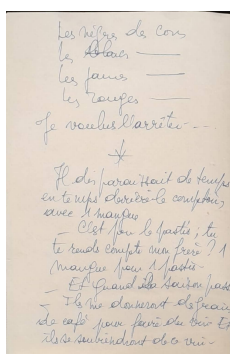 Les nègres des cons
les blancs ———
Les jaunes ———
Les rouges ———
Je voulus l'arrêter - - -
Il disparaissait de temps
en temps derrière le comptoir
avec 1 mangue
— C'est pour le pastis, tu
te rends compte mon frère ? 1
mangue pour 1 pastis -
— Et quand la saison
— Ils me donneront
de café pour faire du vin Et
ils se souviendront de ce vin -